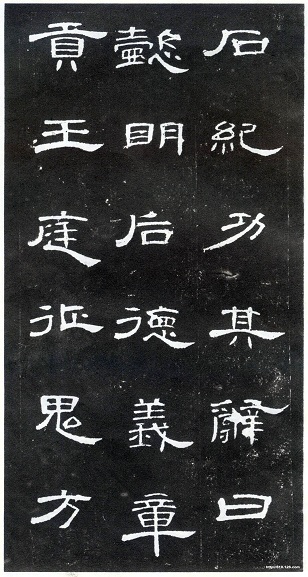 石紀功其辭曰
懿眀后德義章
貢王庭征鬼方